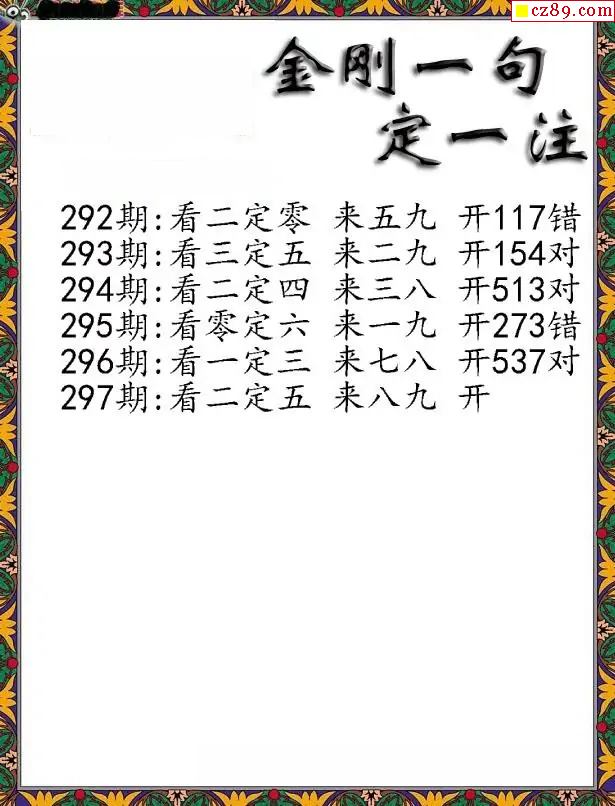 cz89.com
金刚一句
定一注
292期:看二定零 来五九 开117错
293期:看三定五 来二九 开154对
294期:看二定四 来三八 开513对
295期:看零定六 来一九 开273错
296期:看一定三 来七八 开537对
297期:看二定五 来八九 开